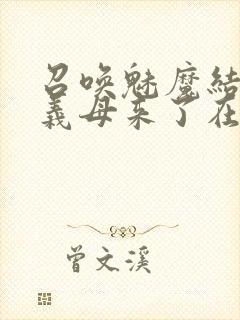 召唤魅魔结
義母来了在
曾文溪